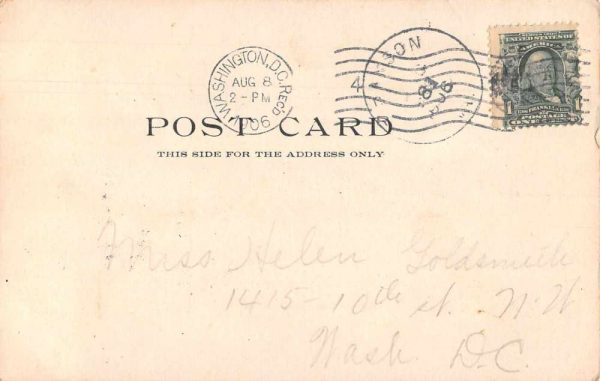 WASHINGTON, D.C. REC'D
AUG 8
2 - PM
1906
4
SERIES 1902
UNITED STATES OF
AMERICA
1 FRANKLIN 1
POSTAGE
ONE CENT
POST CARD
THIS SIDE FOR THE ADDRESS ONLY
Miss Helen Goldsmith
1415-10th st. N.W
Wash. D.C.